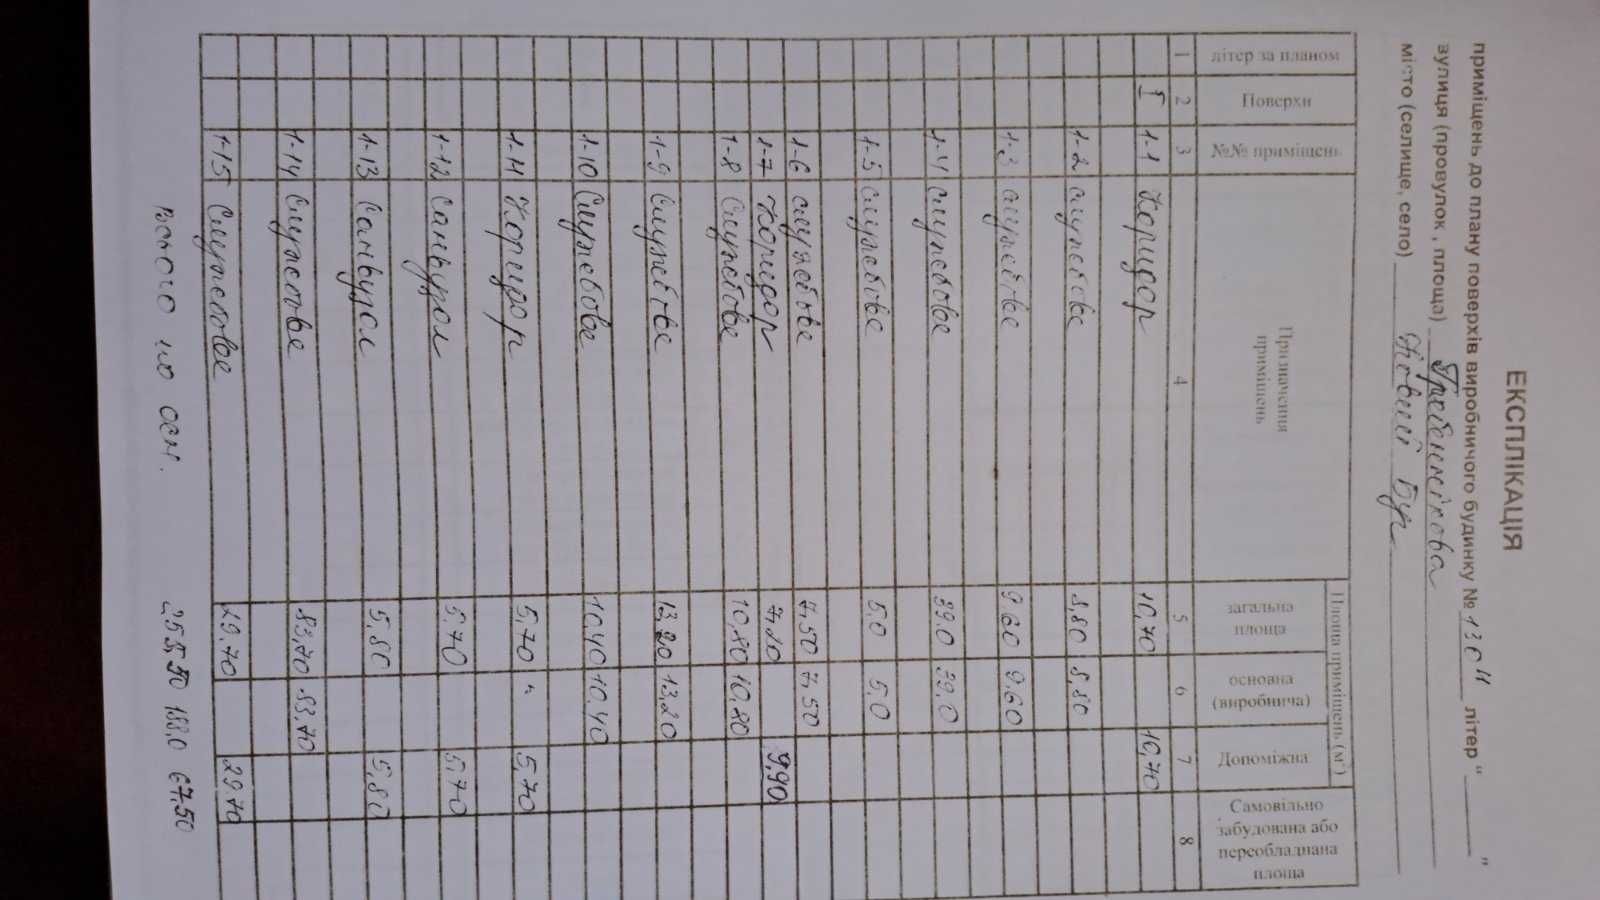 ЕКСПЛІКАЦІЯ
приміщень до плану поверхів виробничого будинку № 136" літер "____"
вулиця (провулок , площа) Гребеннікова
місто (селище, село) Новий Буг
літер за планом Поверхи №№ приміщень Призначення приміщень Площа приміщень (м²) Самовільно забудована або переобладнана площа
загальна площа основна (виробнича) Допоміжна
1 2 3 4 5 6 7 8
I 1-1 Коридор 10,70 10,70
1-2 службове 8,80 8,80
1-3 службове 9,60 9,60
1-4 службове 39,0 39,0
1-5 службове 5,0 5,0
1-6 службове 7,50 7,50
1-7 Коридор 9,90
1-8 Службове 10,80 10,80
1-9 Службове 13,20 13,20
1-10 Службове 10,40 10,40
1-11 Коридор 5,70 " 5,70
1-12 Санвузол 5,70 5,70
1-13 Санвузол 5,80 5,80
1-14 Службове 83,70 83,70
1-15 Службове 29,70 29,70
Всього по осн. 255,50 188,0 67,50